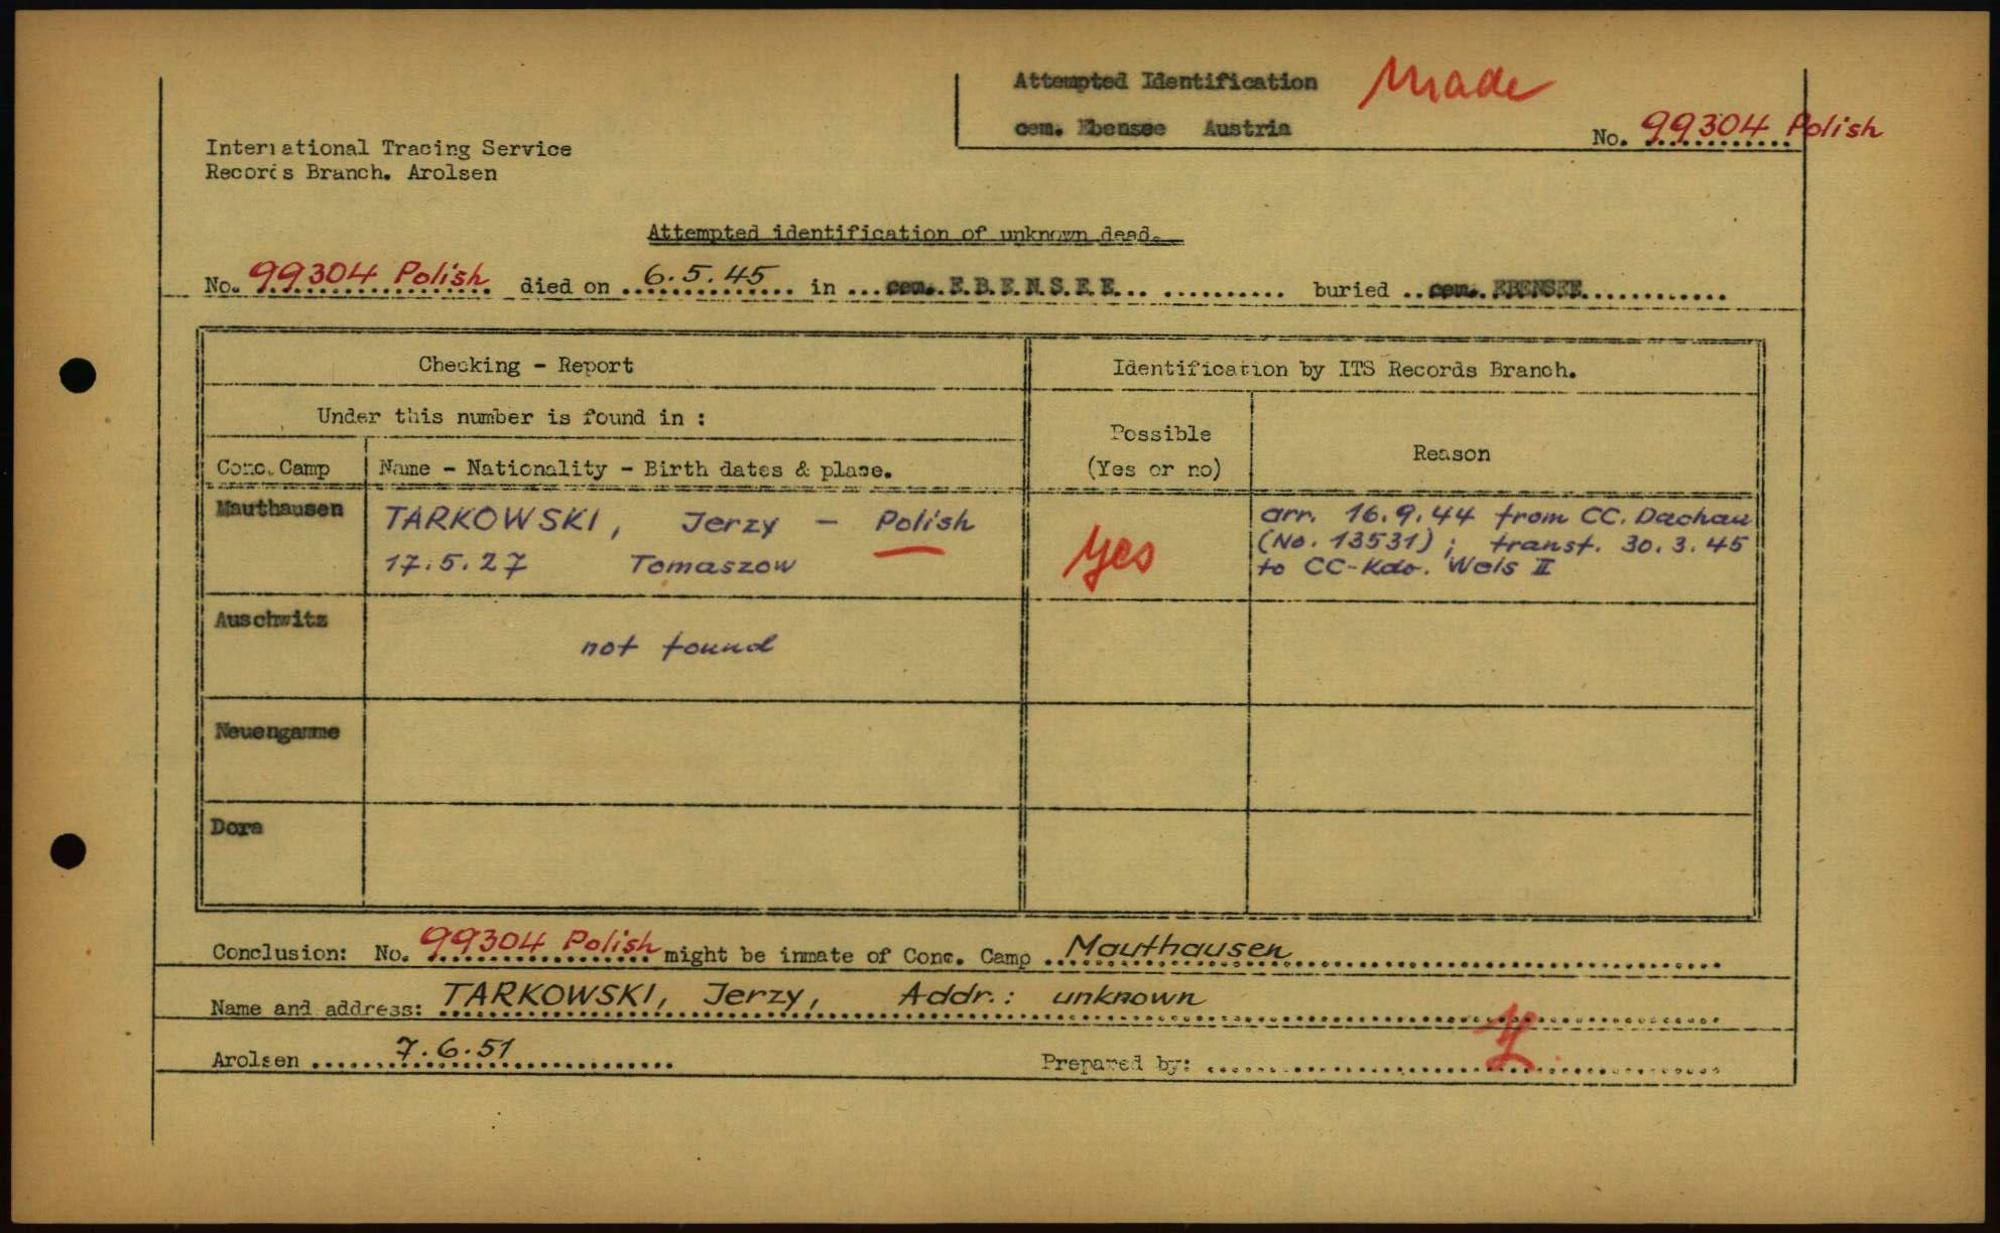 Attempted Identification Made
cem. Ebensee Austria
No. 99304 Polish
International Tracing Service
Records Branch. Arolsen
Attempted identification of unknown dead.
No. 99304 Polish died on 6.5.45 in cem. E.B.E.N.S.E.E. buried cem. EBENSEE
Checking - Report
Identification by ITS Records Branch.
Under this number is found in :
Possible
(Yes or no)
Reason
Conc. Camp Name - Nationality - Birth dates & place.
Mauthausen
TARKOWSKI, Jerzy - Polish
17.5.27 Tomaszow
yes
arr. 16.9.44 from CC. Dachau
(No. 13531); transf. 30.3.45
to CC-Kdo. Wels II
Auschwitz
not found
Neuengamme
Dora
Conclusion: No. 99304 Polish might be inmate of Conc. Camp Mauthausen
Name and address: TARKOWSKI, Jerzy, Addr.: unknown
Arolsen 7.6.51 Prepared by: